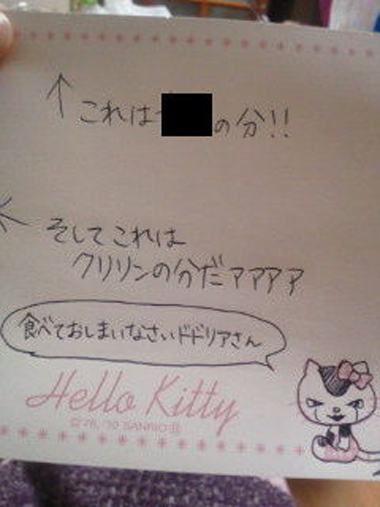 ↑これは
の分!!
そしてこれは
クリリンの分だァァァァ
食べておしまいなさいドドリアさん
Hello Kitty